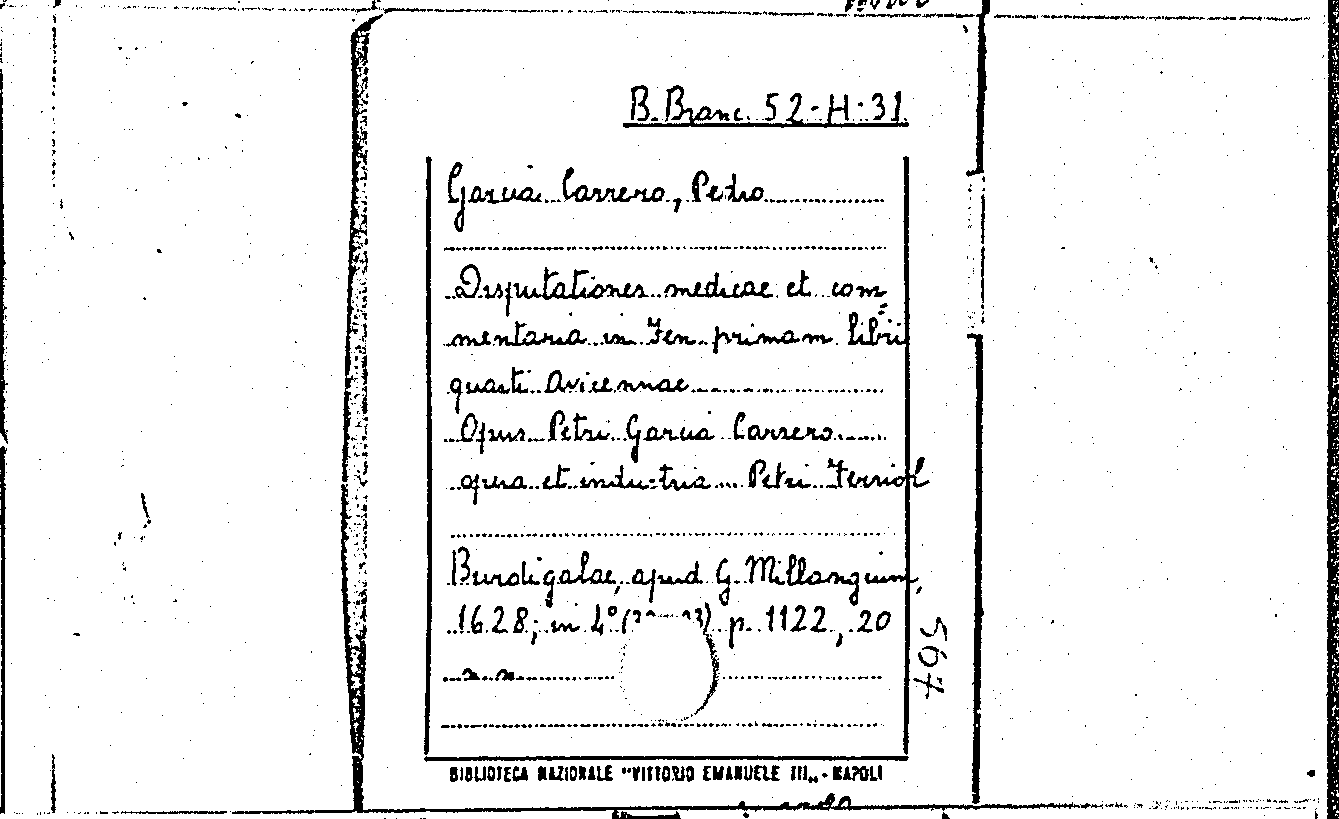 B. Branc. 52-H-31
Garcia Carrero, Pedro
Disputationes medicae et com
mentaria in Fen primam libri
quarti Avicennae
Opus Petri Garcia Carrero
opera et industria ... Petri Ferriol
Burdigalae, apud G. Millangium,
1628; in 4° p. 1122, 20
n. n.
567
BIBLIOTECA NAZIONALE "VITTORIO EMANUELE III„ - NAPOLI